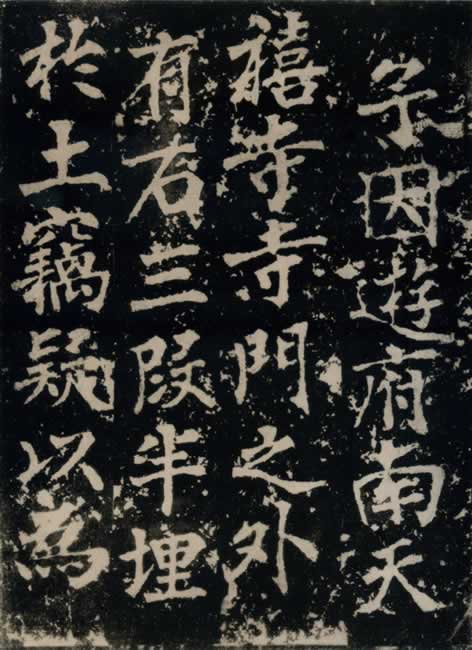 余因遊府南天
禧寺寺門之外
有石三段半埋
於土竊疑以為